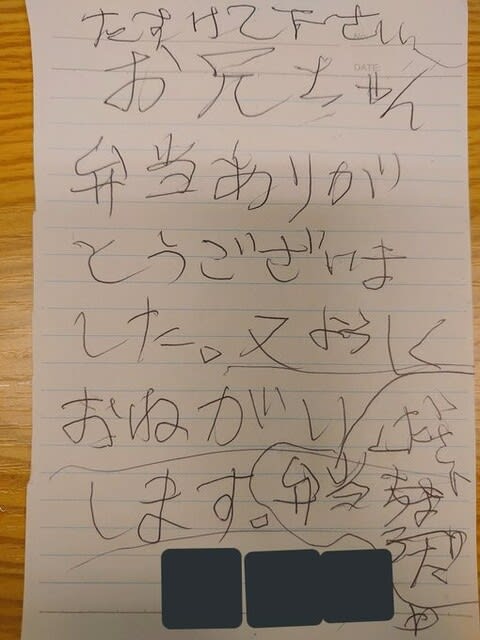 たすけて下さい
DATE
お兄ちゃん
弁当ありが
とうございま
した。又よろしく
おねがい
します。弁当